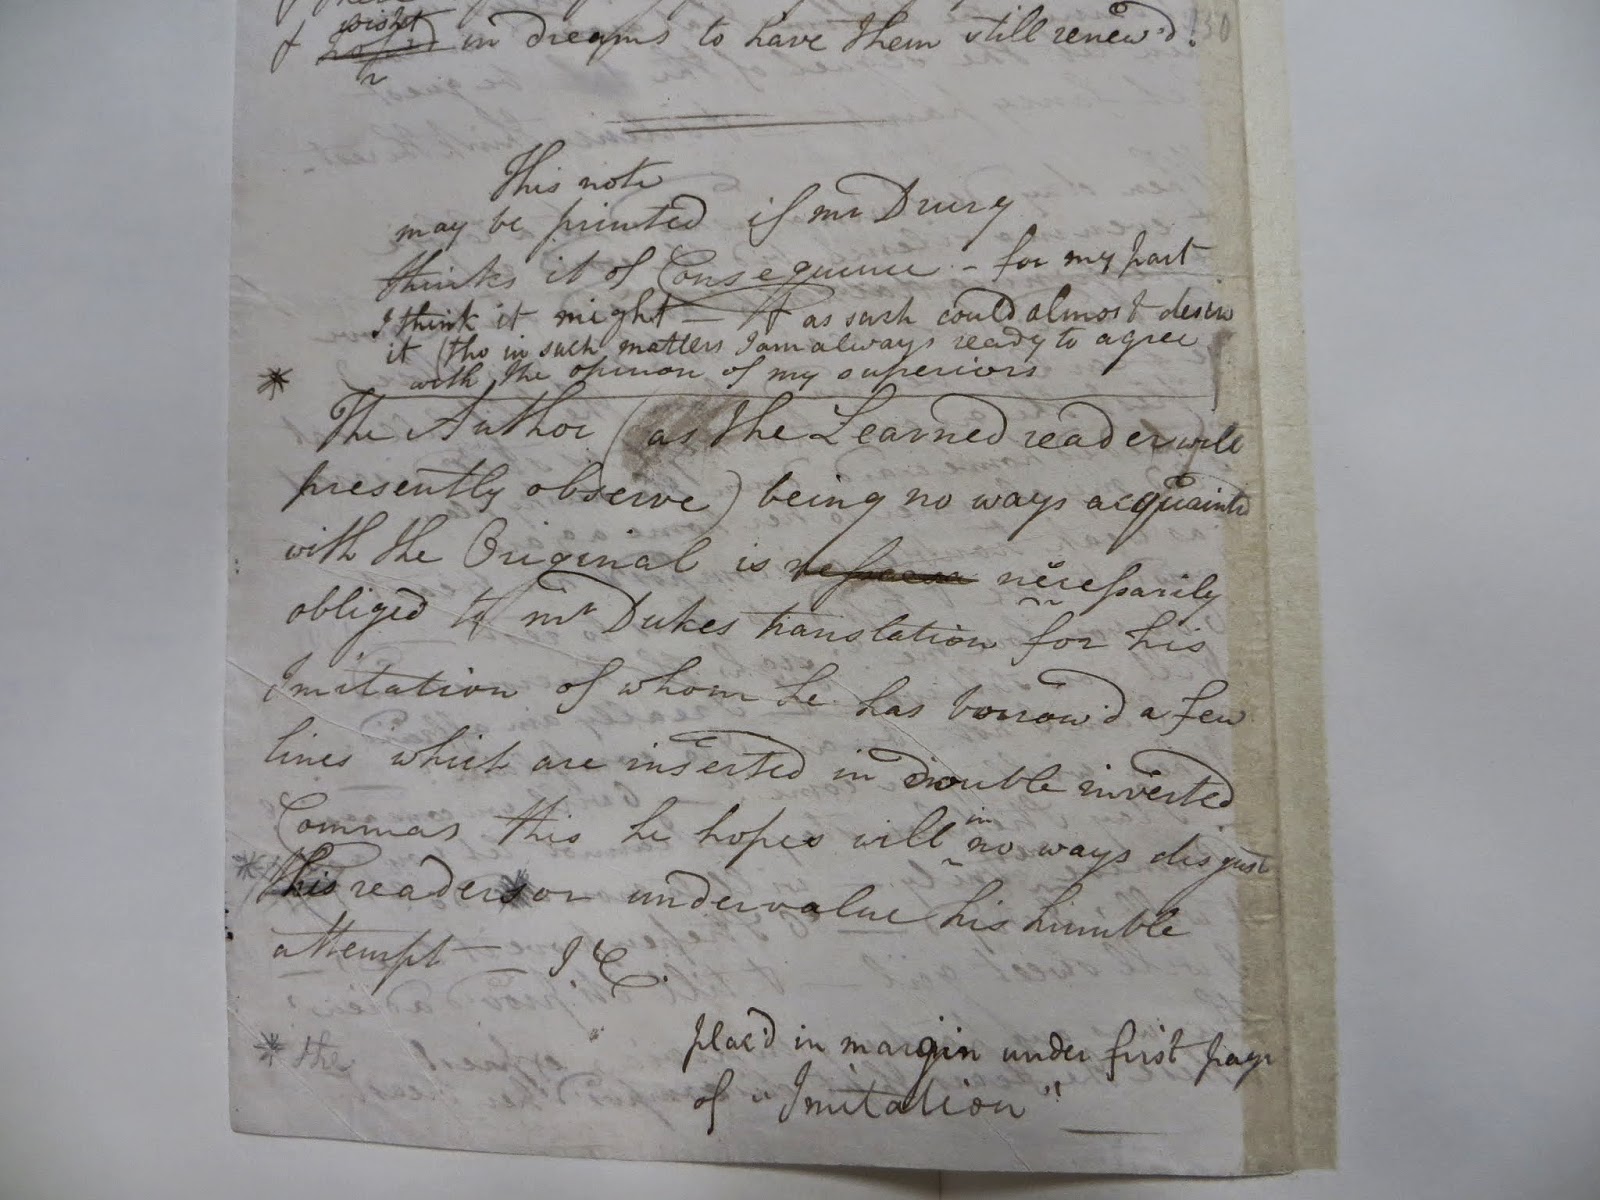 wisht
& hop'd in dreams to have them still renew'd! 130
This note
may be printed if mr Drury
thinks it of Consequence – for my part
I think it might — & as such could almost desire
it (tho in such matters I am always ready to agree
with the opinion of my superiors
*
The Author (as the Learned reader will
presently observe) being no ways acquainted
with the Original is necessarily
obliged to mr Dukes translation for his
Imitation of whom he has borrow'd a few
lines which are inserted in double inverted
Commas this he hopes will in no ways disgust
* this readers or undervalue his humble
attempt — J C.
* the
plac'd in margin under first page
of "Imitation"